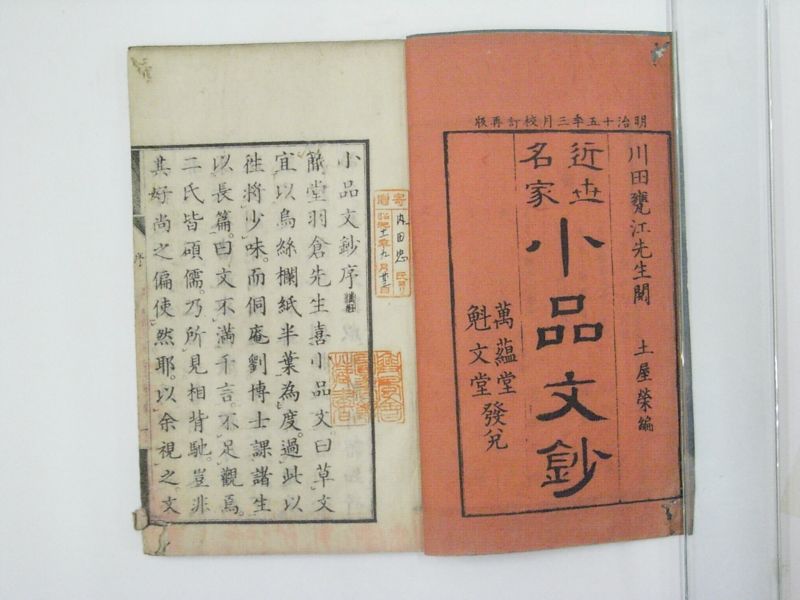 明治十五年三月校訂再版
川田甕江先生閲　土屋榮編
近世名家
小品文鈔
萬蘊堂
魁文堂
發兌
寄贈
内田忠氏
昭和十一年九月
小品文鈔序
簡堂羽倉先生喜小品文曰草文
宜以烏絲欄紙半葉為度過此以
往將少味而侗庵劉博士課諸生
以長篇曰文不滿千言不足觀焉
二氏皆碩儒乃所見相背馳豈非
其好尚之偏使然耶以余視之文
序